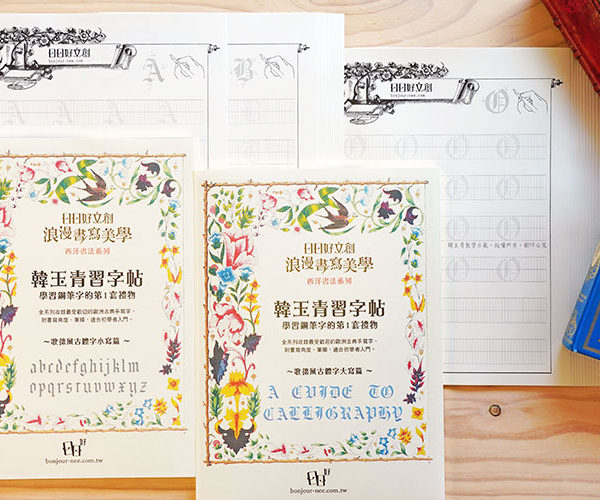 日日好文創
bonjour-nee.com
A
A A A A
B
日日好文創
bonjour-nee.com
O
O O O O
O O O O
O O O O
韓玉青教學示範，版權所有，翻印必究
O O O O
日日好文創
浪漫書寫美學
西洋書法系列
韓玉青習字帖
學習鋼筆字的第1套禮物
全系列收錄最受歡迎的歐洲古典手寫字，
附書寫角度、筆順，適合初學者入門。
～歌德風古體字小寫篇～
abcdefghijklm
nopqrstuvwxyz
日日好
bonjour-nee.com.tw
日日好文創
浪漫書寫美學
西洋書法系列
韓玉青習字帖
學習鋼筆字的第1套禮物
全系列收錄最受歡迎的歐洲古典手寫字，
附書寫角度、筆順，適合初學者入門。
～歌德風古體字大寫篇～
A GUIDE TO
CALLIGRAPHY
日日好
bonjour-nee.com.tw